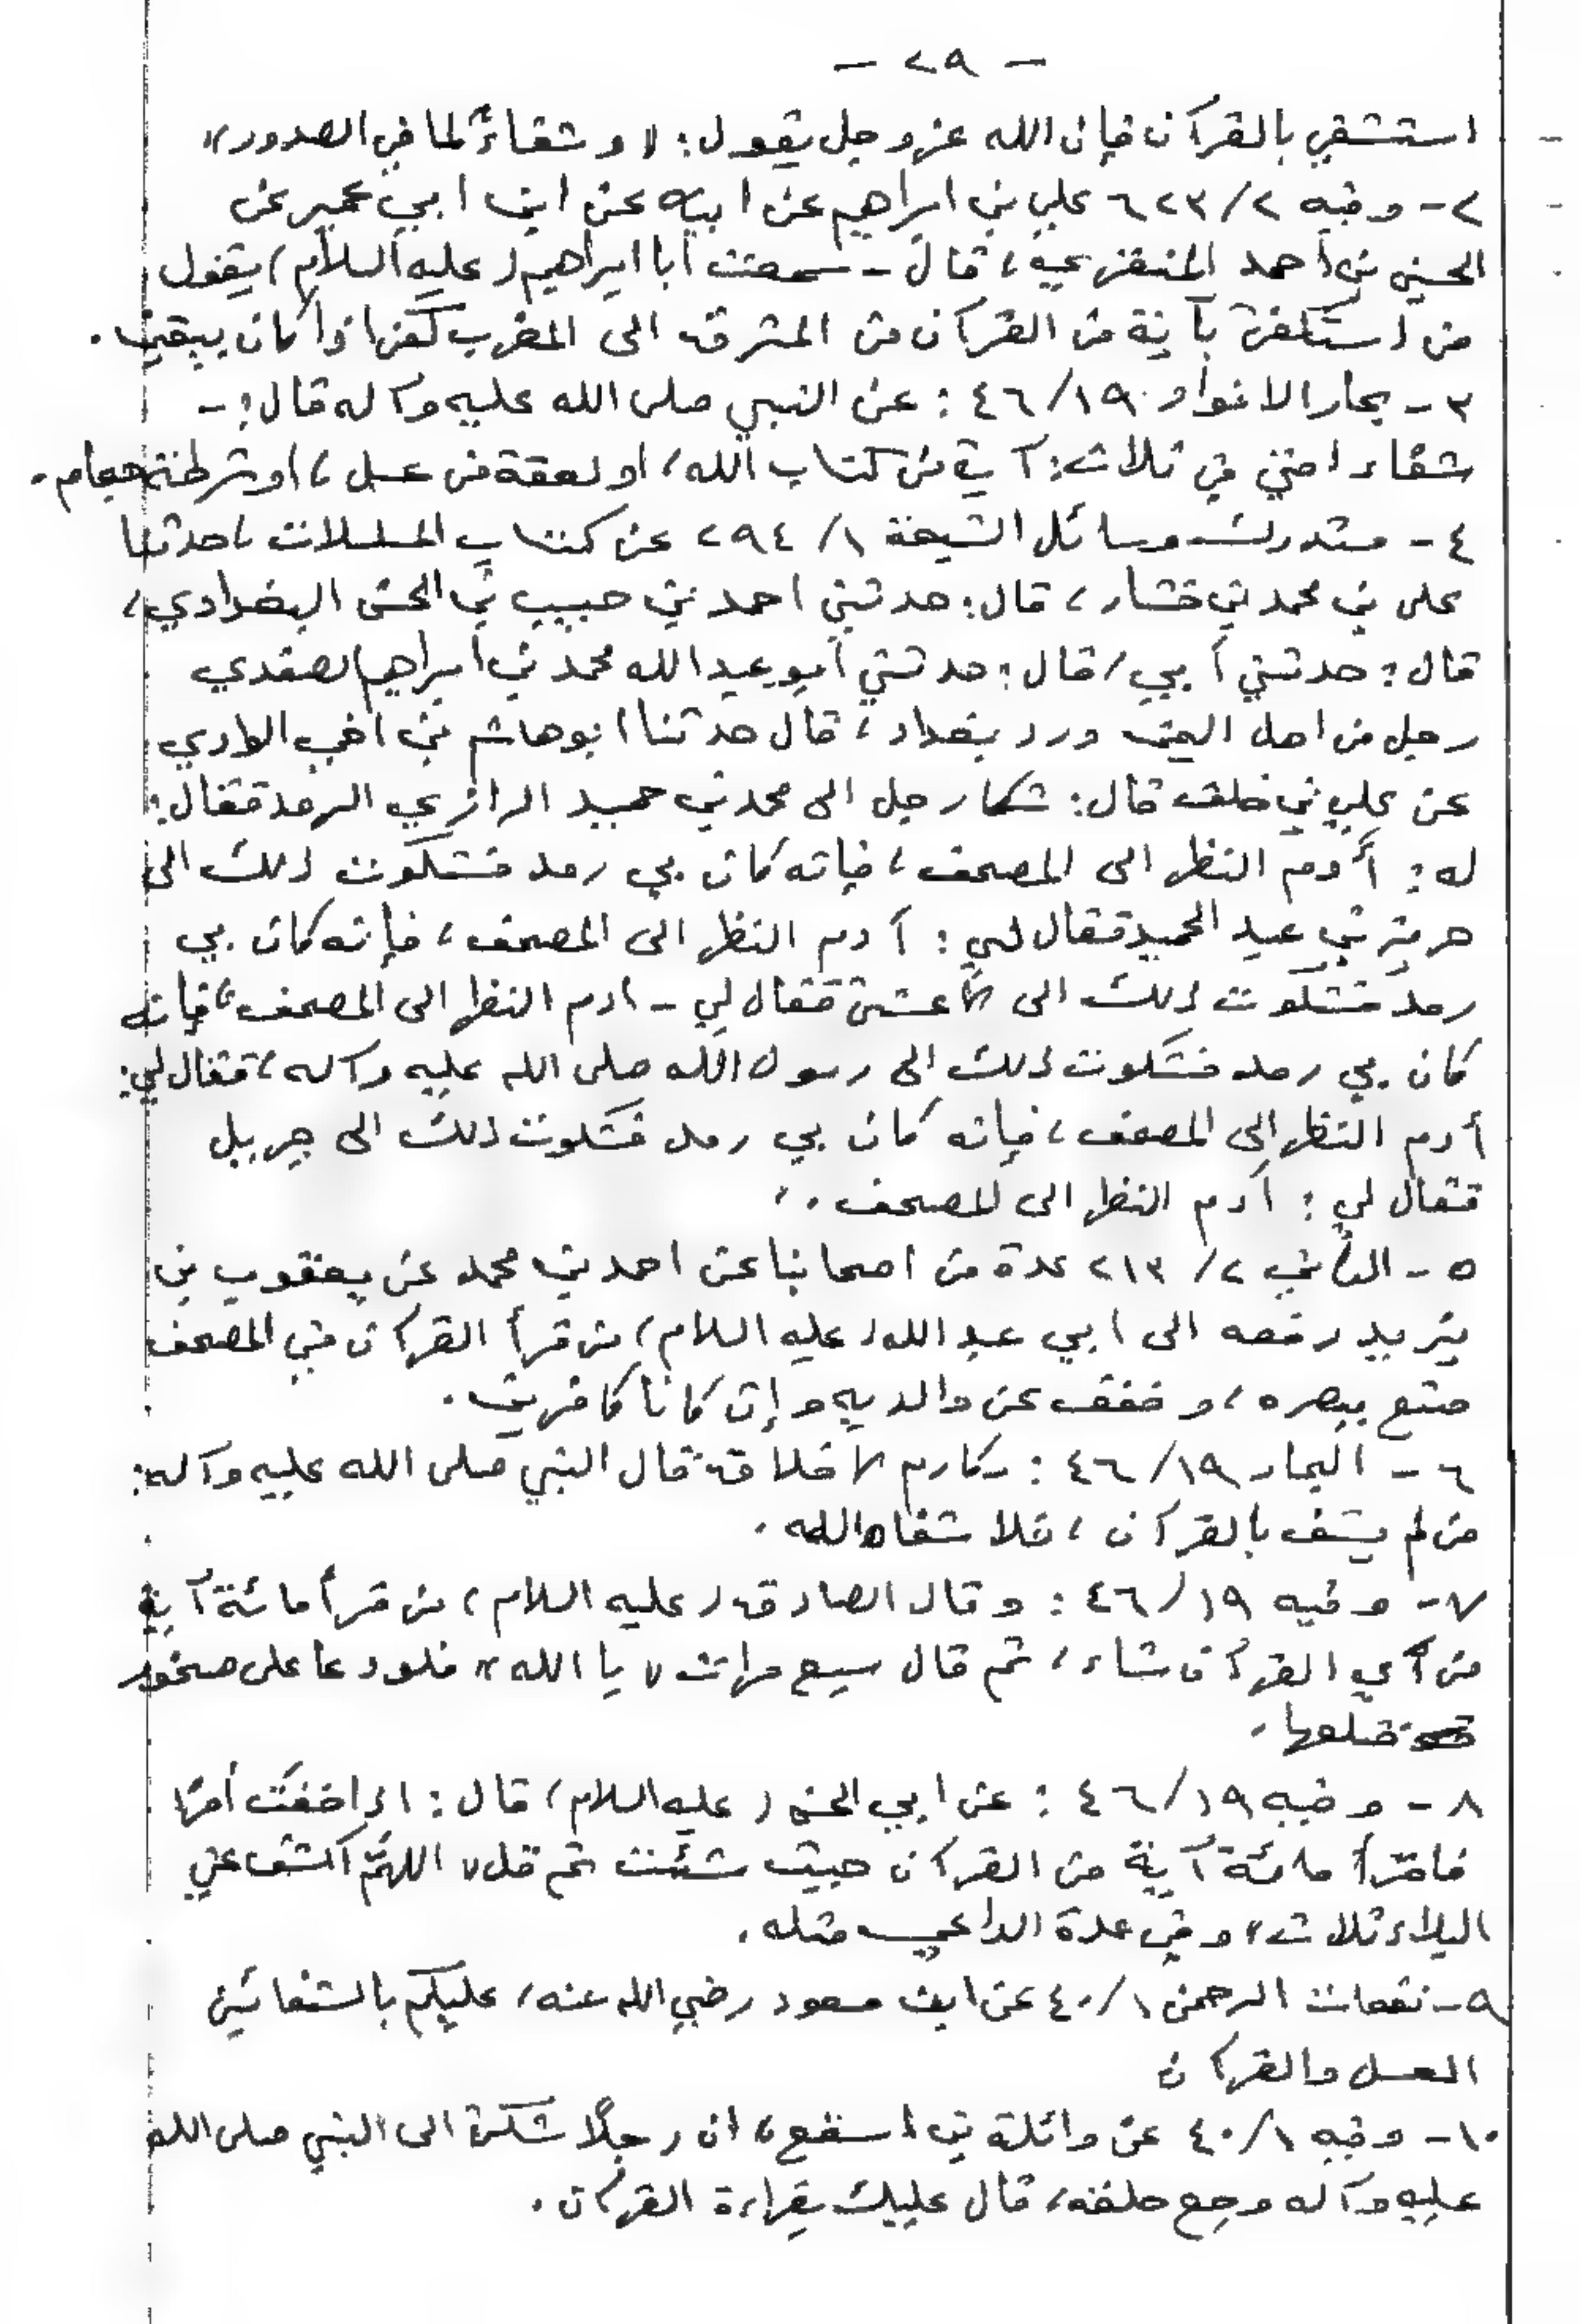 - ٢٩ -
استشفي بالقرآن فإن الله عز وجل يقول: « وشفاءٌ لما في الصدور »
٢- وفيه ٢/ ٦٢٣ علي بن ابراهيم عن ابيه عن ابن ابي عمير عن
الحسين بن احمد المنقري، قال - سمعت أبا ابراهيم (عليه السلام) يقول
من استكفى بآية من القرآن من المشرق الى المغرب كفي اذا كان بيقين.
٣- بحار الانوار ١٩/ ٤٦: عن النبي صلى الله عليه وآله قال: -
شفاء امتي في ثلاث: آية من كتاب الله، او لعقة من عسل، او شرطة حجام.
٤- مستدرك وسائل الشيعة ١/ ٢٩٤ عن كتاب المسلسلات، حدثنا
علي بن محمد بن حشار، قال: حدثني احمد بن حبيب بن الحسن البغدادي،
قال: حدثني أبي، قال: حدثني أبو عبد الله محمد بن ابراهيم الصفدي
رجل من اهل اليمن ورد بغداد، قال حدثنا ابو هاشم بن اخي الوادي
عن علي بن خلف قال: شكا رجل الى محمد بن حميد الرازي الرمد فقال:
له: أدم النظر الى المصحف، فإنه كان بي رمد فشكوت ذلك الى
حريز بن عبد الحميد فقال لي: أدم النظر الى المصحف، فإنه كان بي
رمد فشكوت ذلك الى الأعمش فقال لي - ادم النظر الى المصحف، فإنه
كان بي رمد فشكوت ذلك الى رسول الله صلى الله عليه وآله، فقال لي:
أدم النظر إلى المصحف، فإنه كان بي رمد فشكوت ذلك الى جبريل
فقال لي: أدم النظر الى المصحف.
٥- الكافي ٢/ ٢١٣ عدة من اصحابنا عن احمد بن محمد عن يعقوب بن
يزيد رفعه الى ابي عبد الله (عليه السلام) من قرأ القرآن في المصحف
متع ببصره، وخفف عن والديه وإن كانا كافرين.
٦- البحار ١٩/ ٤٦: مكارم الاخلاق: قال النبي صلى الله عليه وآله:
من لم يستشف بالقرآن، فلا شفاه الله.
٧- وفيه ١٩/ ٤٦: وقال الصادق (عليه السلام) من قرأ مائة آية
من آي القرآن شاء، ثم قال سبع مرات « يا الله » فلو دعا على صخور
فلعها.
٨- وفيه ١٩/ ٤٦: عن ابي الحسن (عليه السلام) قال: اذا خفت أمرًا
فاقرأ مائة آية من القرآن حيث شئت ثم قل « اللهمَّ اكشف عني
البلاء ثلاث » وفي عدة الداعي مثله.
٩- نفحات الرحمن ١/ ٤٠ عن ابن مسعود رضي الله عنه، عليكم بالشفائين
العسل والقرآن
١٠- وفيه ١/ ٤٠ عن واثلة بن اسقع، ان رجلًا شكى الى النبي صلى الله
عليه وآله وجع حلقه، قال عليك بقراءة القرآن.